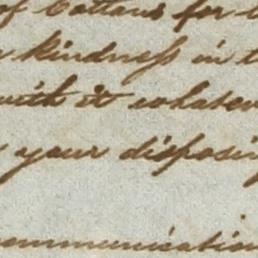 of Cottons for
kindness in
with it whatever
your disposing
communication